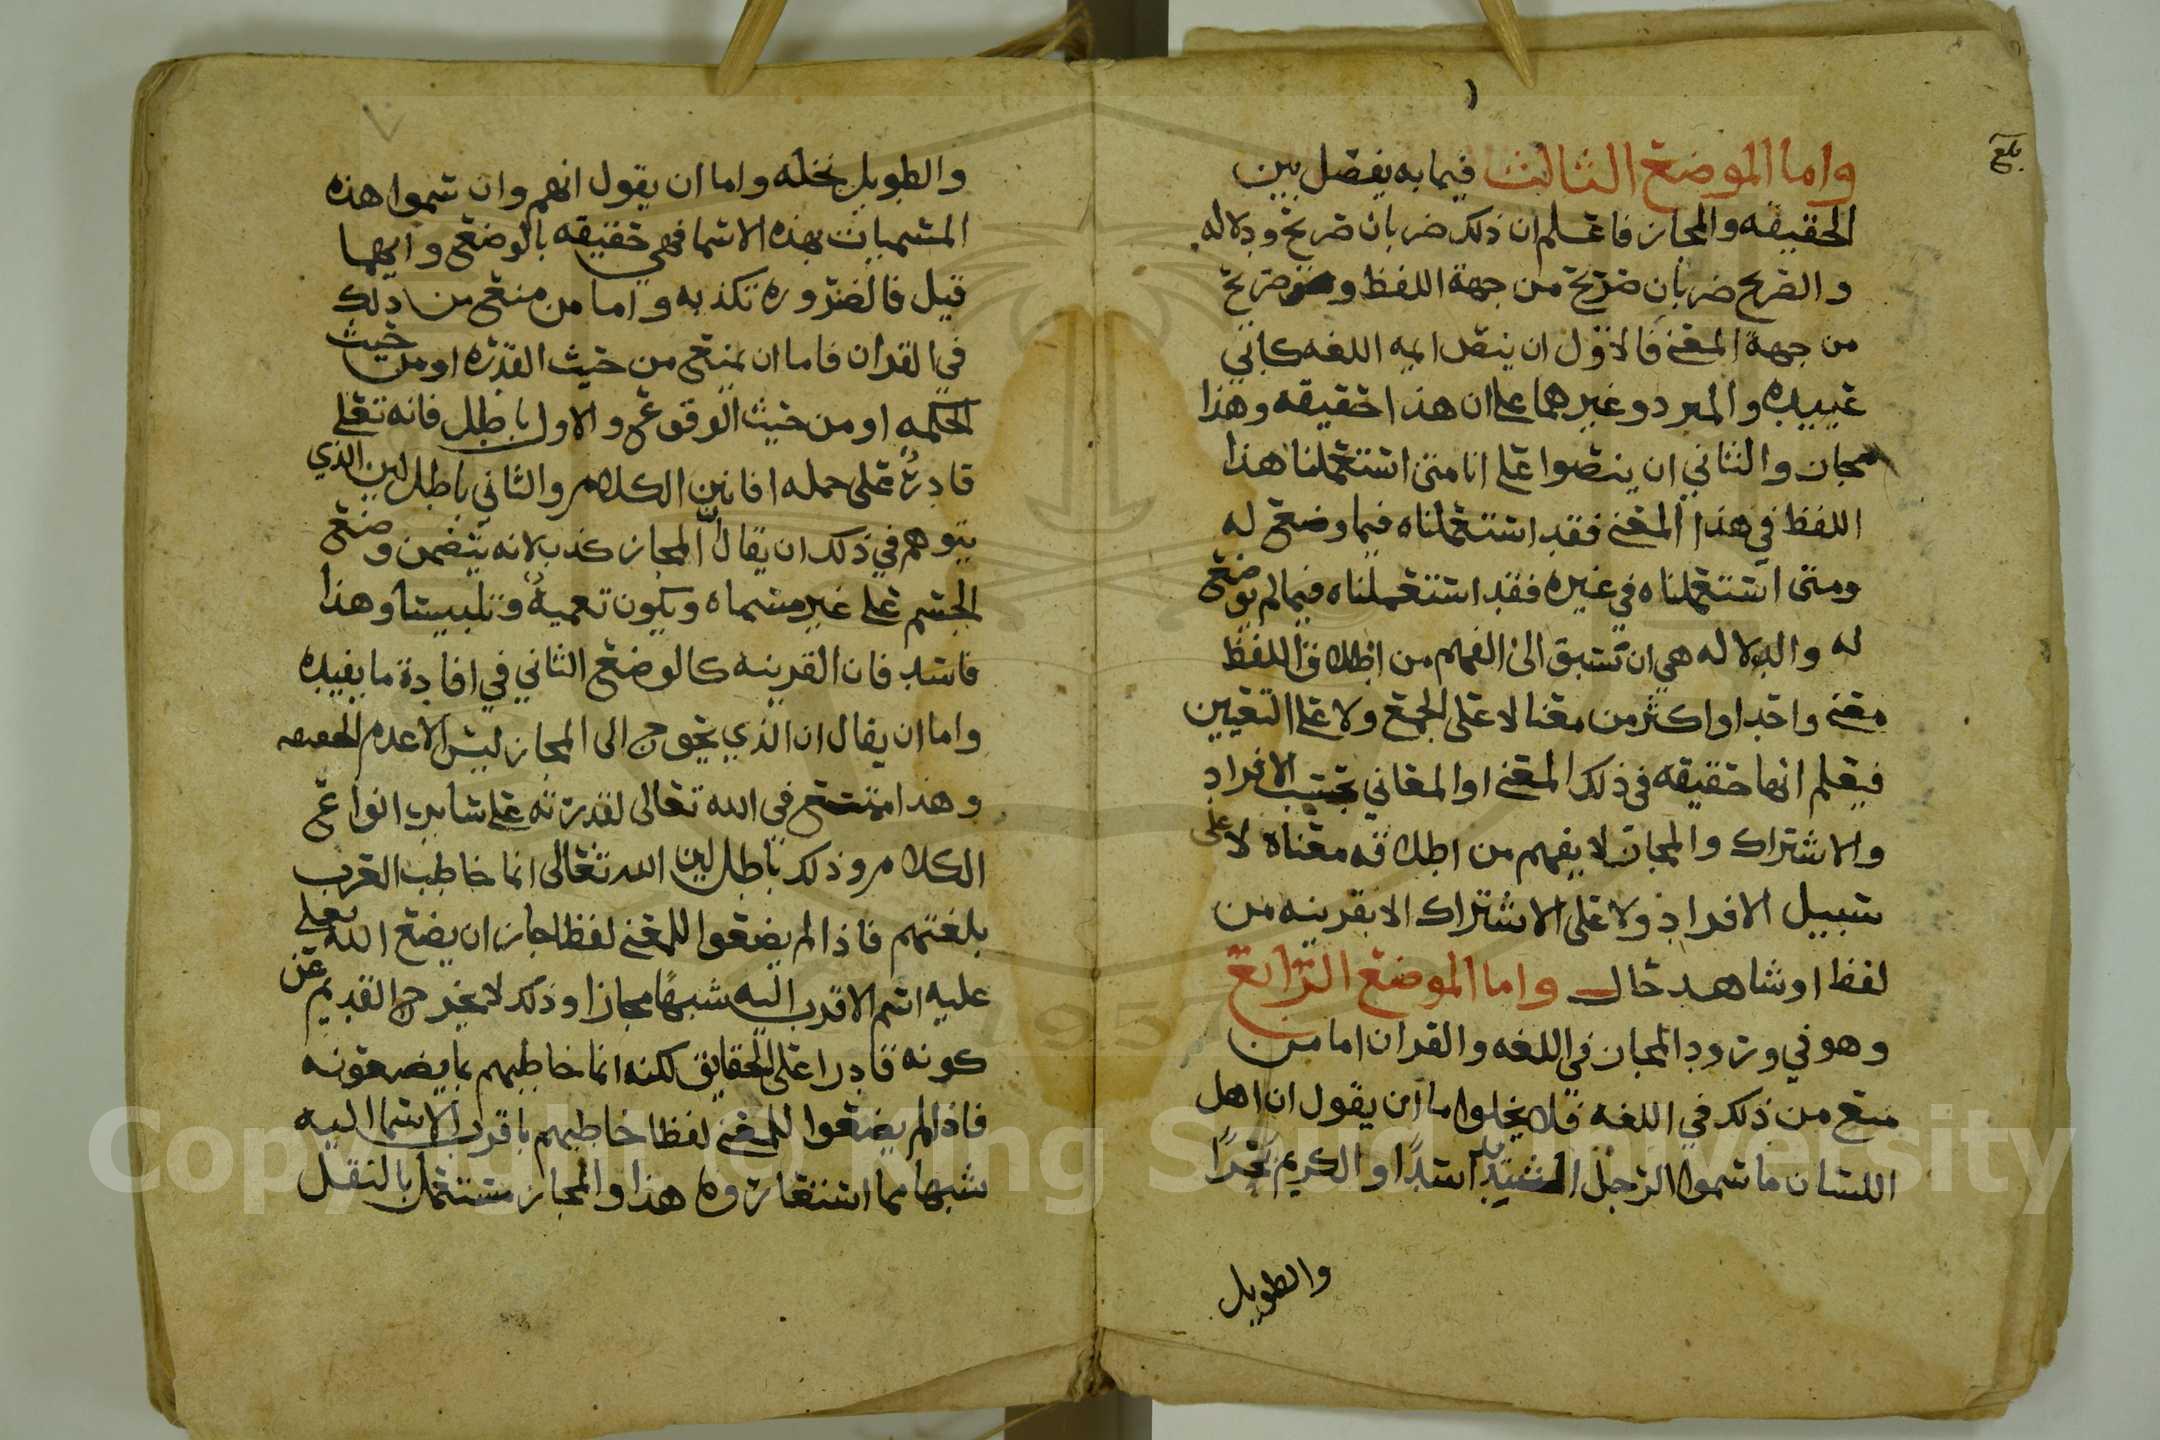 بلغ
واما الموضع الثالث فيما به يفصل بين
الحقيقه والمجاز فاعلم ان ذلك ضربان صريح ودلاله
والصريح ضربان صريح من جهة اللفظ وصريح
من جهة المعنى فالاول ان ينقل ايمه اللغه كابي
عبيده والمبرد وغيرهما على ان هذا حقيقه وهذا
مجاز والثاني ان ينصوا على انا متى استعملنا هذا
اللفظ في هذا المعنى فقد استعملناه فيما وضع له
ومتى استعملناه في غيره فقد استعملناه فيما لم يوضع
له والدلاله هي ان تسبق الى الفهم من اطلاق اللفظ
معنى واحد او اكثر من معنا لا على الجمع ولا على التعيين
فيعلم انها حقيقه في ذلك المعنى او المعاني بحسب الافراد
والاشتراك والمجاز لا يفهم من اطلاقه معناه لا على
سبيل الافراد ولا على الاشتراك الا بقرينه من
لفظ او شاهد حال واما الموضع الرابع
وهو في ورود المجاز في اللغه والقران اما من
منع من ذلك في اللغه فلا يخلوا ما ان يقول ان اهل
اللسان ما سموا الرجل الشديد اسدًا والكريم بحرًا
والطويل
والطويل نخله واما ان يقول انهم وان سموا هذه
المسميات بهذه الاسما فهي حقيقه بالوضع وايهما
قيل فالضروره تكذبه واما من منع من ذلك
في القران فاما ان يمنع من حيث القدره او من حيث
الحكمه او من حيث الوقوع والاول باطل فانه تعلى
قادرٌ على حمله افانين الكلام والثاني باطل لان الذي
يتوهم في ذلك ان يقال ان المجاز كذب لانه يتضمن وضع
الجسم على غير مسماه ويكون تعميةً وتلبيسًا وهذا
فاسد فان القرينه كالوضع الثاني في افادة ما يفيده
واما ان يقال ان الذي يحوج الى المجاز ليس الا عدم الحقيقه
وهذا ممتنع في الله تعالى لقدرته على ساير انواع
الكلام وذلك باطل لان الله تعالى انما خاطب العرب
بلغتهم فاذا لم يضعوا للمعنى لفظا جاز ان يضع الله تعلى
عليه اسم الاقرب اليه شبهًا مجازا وذلك لا يخرج القديم عن
كونه قادرا على الحقايق لكنه انما خاطبهم بما يضعونه
فاذا لم يضعوا للمعنى لفظا خاطبهم باقرب الاسما اليه
شبها مما استعاروه هذا والمجاز مستعمل بالنقل
Copyright © King Saud University
1957